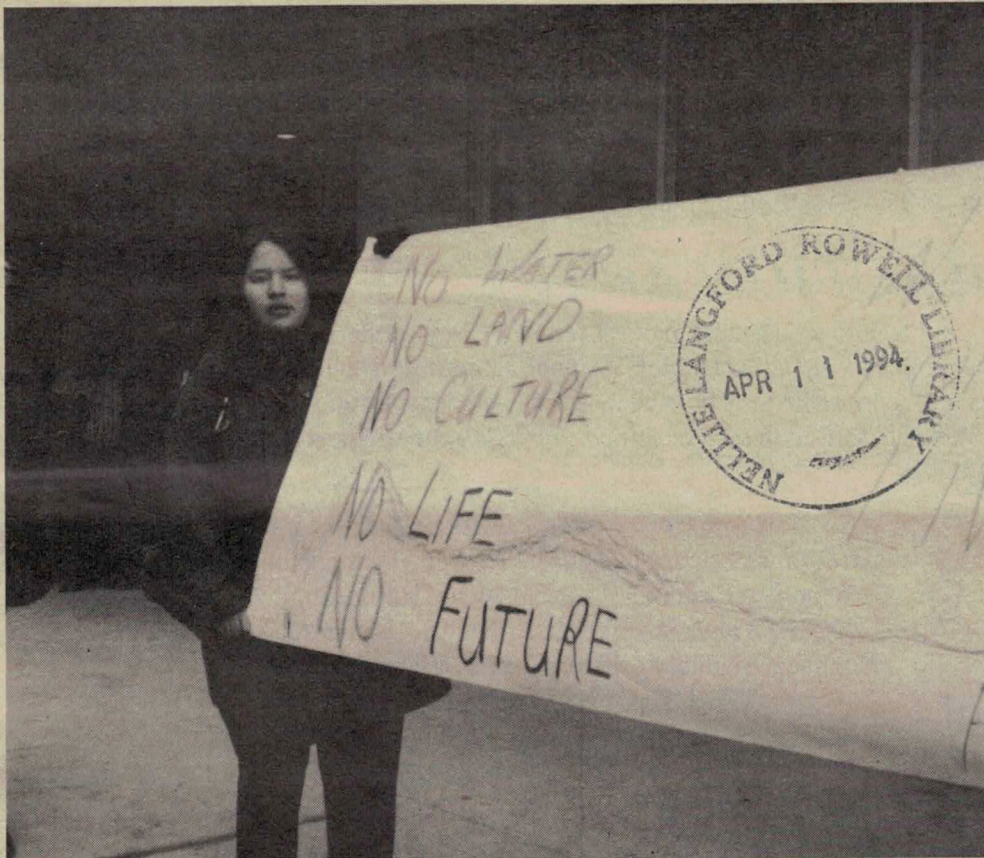 NO WATER
NO LAND
NO CULTURE
NO LIFE
NO FUTURE
NELLIE LANGFORD ROWELL LIBRARY
APR 1 1 1994.